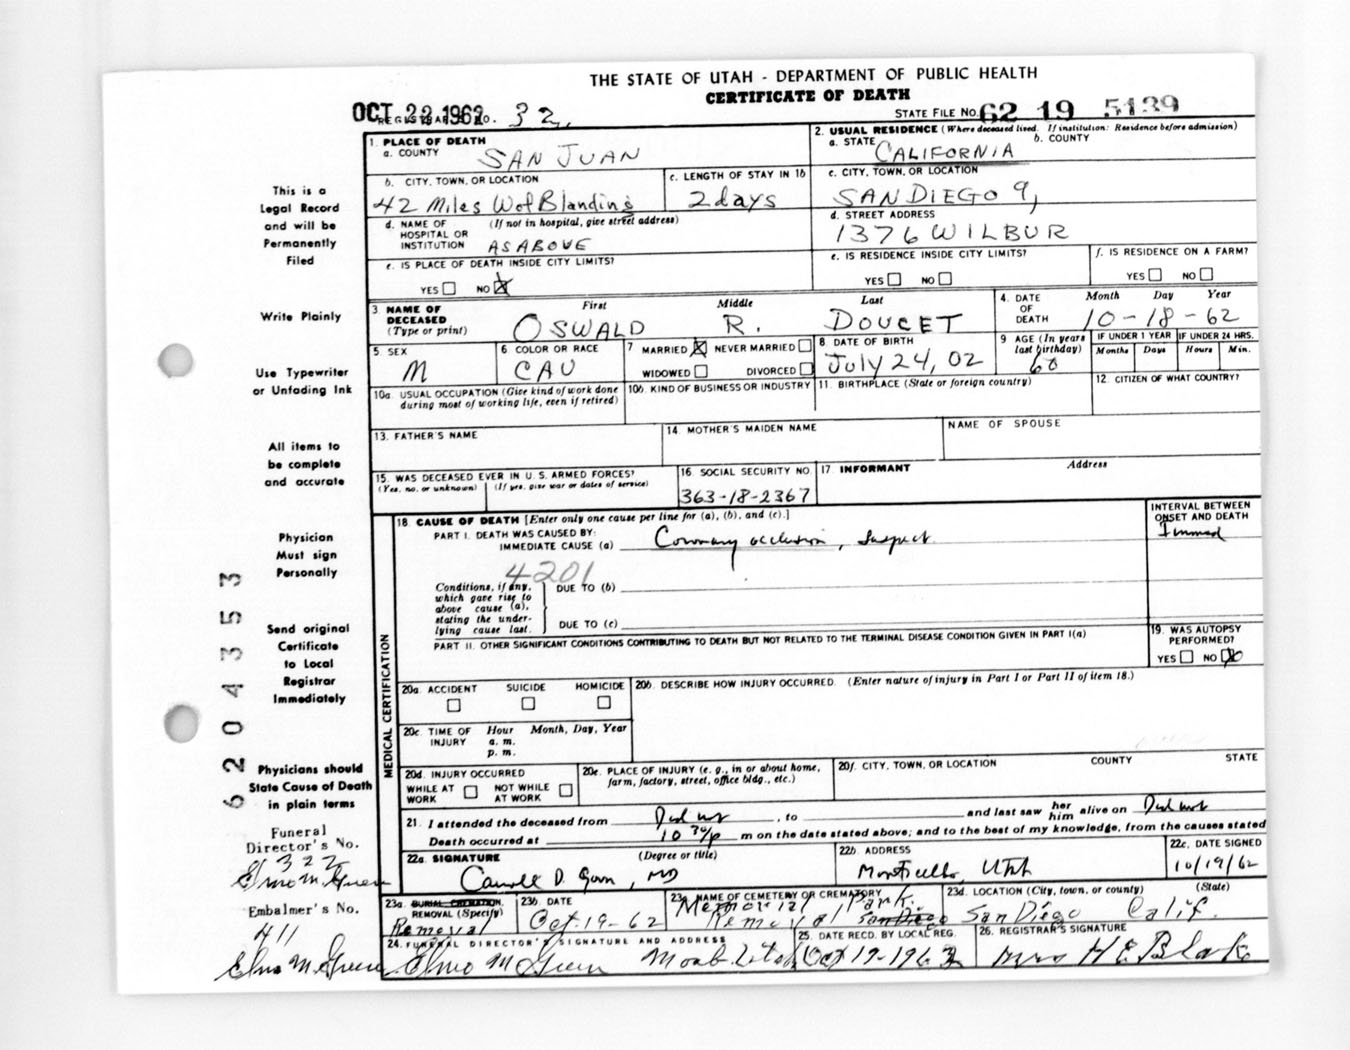 THE STATE OF UTAH - DEPARTMENT OF PUBLIC HEALTH
CERTIFICATE OF DEATH
OCT 22 1962 REGISTRAR'S NO. 32
STATE FILE NO. 62 19 5139
1. PLACE OF DEATH
a. COUNTY SAN JUAN
2. USUAL RESIDENCE (Where deceased lived. If institution: Residence before admission)
a. STATE CALIFORNIA b. COUNTY
b. CITY, TOWN, OR LOCATION
42 Miles W of Blanding
c. LENGTH OF STAY IN 1b
2 days
c. CITY, TOWN, OR LOCATION
SAN DIEGO 9,
d. NAME OF HOSPITAL OR INSTITUTION (If not in hospital, give street address)
AS ABOVE
d. STREET ADDRESS
1376 WILBUR
e. IS PLACE OF DEATH INSIDE CITY LIMITS?
YES NO X
e. IS RESIDENCE INSIDE CITY LIMITS?
YES NO
f. IS RESIDENCE ON A FARM?
YES NO
3. NAME OF DECEASED (Type or print)
First Middle Last
OSWALD R. DOUCET
4. DATE OF DEATH Month Day Year
10-18-62
5. SEX
M
6. COLOR OR RACE
CAU
7 MARRIED X NEVER MARRIED
WIDOWED DIVORCED
8. DATE OF BIRTH
July 24, 02
9 AGE (In years last birthday)
60
IF UNDER 1 YEAR
Months Days
IF UNDER 24 HRS.
Hours Min.
10a. USUAL OCCUPATION (Give kind of work done during most of working life, even if retired)
10b. KIND OF BUSINESS OR INDUSTRY
11. BIRTHPLACE (State or foreign country)
12. CITIZEN OF WHAT COUNTRY?
13. FATHER'S NAME
14. MOTHER'S MAIDEN NAME
NAME OF SPOUSE
15. WAS DECEASED EVER IN U. S. ARMED FORCES?
(Yes, no, or unknown) (If yes, give war or dates of service)
16. SOCIAL SECURITY NO.
363-18-2367
17. INFORMANT Address
18. CAUSE OF DEATH [Enter only one cause per line for (a), (b), and (c).]
INTERVAL BETWEEN ONSET AND DEATH
PART I. DEATH WAS CAUSED BY:
IMMEDIATE CAUSE (a) Coronary occlusion, suspect
Immed
4201
Conditions, if any, which gave rise to above cause (a), stating the underlying cause last.
DUE TO (b)
DUE TO (c)
PART II. OTHER SIGNIFICANT CONDITIONS CONTRIBUTING TO DEATH BUT NOT RELATED TO THE TERMINAL DISEASE CONDITION GIVEN IN PART I(a)
19. WAS AUTOPSY PERFORMED?
YES NO X
MEDICAL CERTIFICATION
20a. ACCIDENT SUICIDE HOMICIDE
20b. DESCRIBE HOW INJURY OCCURRED. (Enter nature of injury in Part I or Part II of item 18.)
20c. TIME OF INJURY Hour Month, Day, Year
a. m.
p. m.
20d. INJURY OCCURRED
WHILE AT WORK NOT WHILE AT WORK
20e. PLACE OF INJURY (e. g., in or about home, farm, factory, street, office bldg., etc.)
20f. CITY, TOWN, OR LOCATION COUNTY STATE
21. I attended the deceased from Did not , to and last saw her him alive on Did not
Death occurred at 10 30/p m on the date stated above; and to the best of my knowledge, from the causes stated
22a. SIGNATURE (Degree or title)
MD
22b. ADDRESS
Monticello, Utah
22c. DATE SIGNED
10/19/62
23a. BURIAL, CREMATION, REMOVAL (Specify)
Removal
23b. DATE
Oct 19-62
23c. NAME OF CEMETERY OR CREMATORY
Memorial Park.
Removal San Diego
23d. LOCATION (City, town, or county) (State)
San Diego Calif.
24. FUNERAL DIRECTOR'S SIGNATURE AND ADDRESS
Elmo M Green Moab Utah
25. DATE RECD. BY LOCAL REG.
Oct 19-1962
26. REGISTRAR'S SIGNATURE
Mrs H E Black
This is a
Legal Record
and will be
Permanently
Filed
Write Plainly
Use Typewriter
or Unfading Ink
All items to
be complete
and accurate
Physician
Must sign
Personally
Send original
Certificate
to Local
Registrar
Immediately
Physicians should
State Cause of Death
in plain terms
Funeral
Director's No.
322
Elmo M. Green
Embalmer's No.
411
Elmo M. Green
6204353